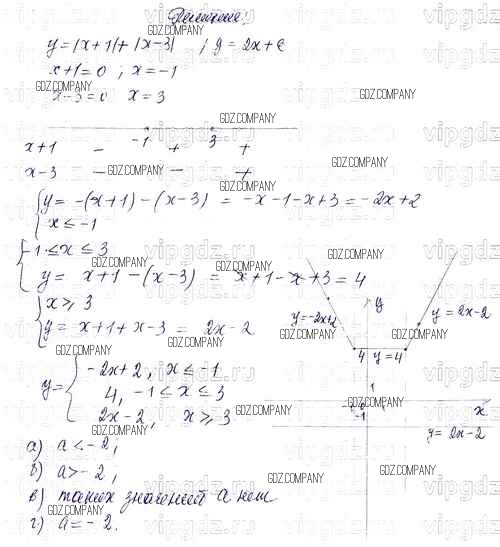 Решение:
y = |x+1| + |x-3| ; y = 2x + a
x+1=0 ; x=-1
x-3=0 x=3
-1 3
x+1 - + +
x-3 - - +
{ y = -(x+1) - (x-3) = -x-1-x+3 = -2x+2
x ≤ -1
{ -1 ≤ x ≤ 3
y = x+1-(x-3) = x+1-x+3 = 4
{ x ≥ 3
y = x+1+x-3 = 2x-2
y = { -2x+2, x ≤ -1
4, -1 ≤ x ≤ 3
2x-2, x ≥ 3
а) a < -2;
б) a > -2;
в) таких значений a нет
г) a = -2.
y
y=-2x+2
y = 2x-2
4 y=4
1
-1
x
y = 2x-2
GDZ.COMPANY
vipgdz.ru